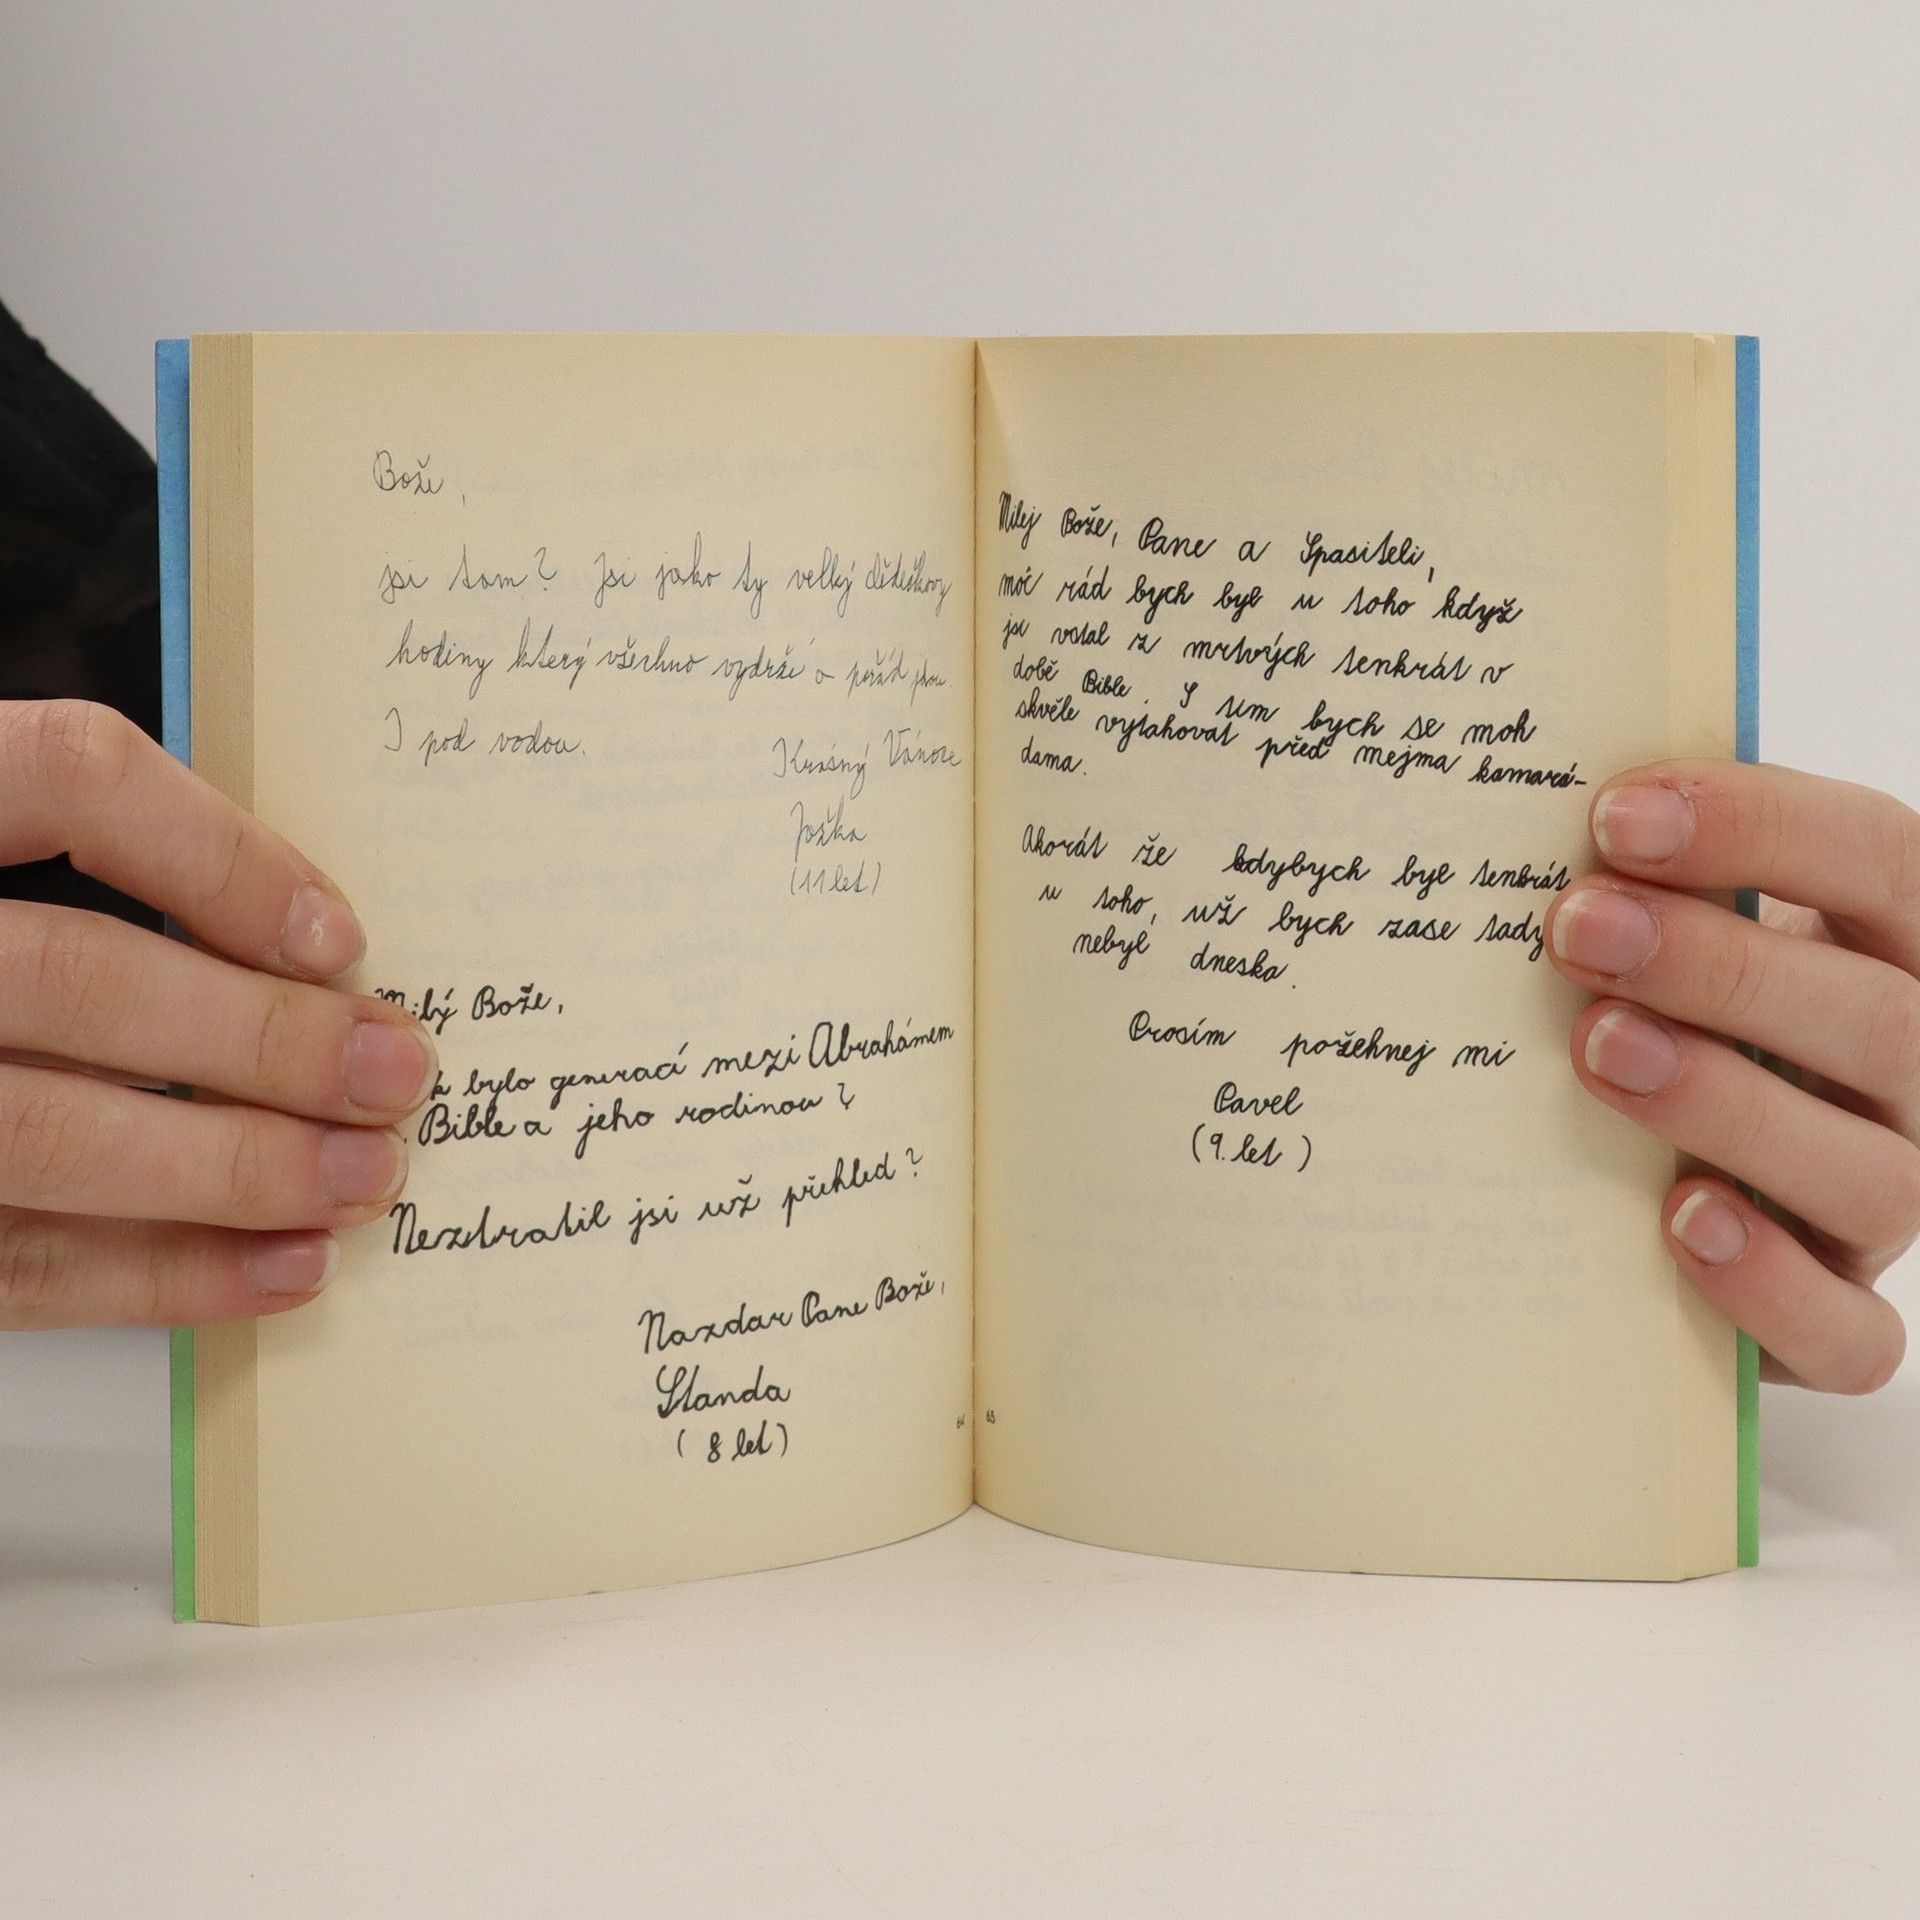 Bože,
jsi tam? Jsi jako ty velký dědečkovy
hodiny který všechno vydrží a pořád jdou.
I pod vodou.
Krásný Vánoce
Jožka
(11 let)
Milý Bože,
bylo generací mezi Abrahámem
Bible a jeho rodinou?
Neztratil jsi už přehled?
Nazdar Pane Bože,
Standa
(8 let)
64
Milej Bože, Pane a Spasiteli,
móc rád bych byl u toho když
jsi vstal z mrtvých tenkrát v
době Bible. S tim bych se moh
skvěle vytahovat před mejma kamará-
dama.
Akorát že kdybych byl tenkrát
u toho, už bych zase tady
nebyl dneska.
Prosím požehnej mi
Pavel
(9. let)
65